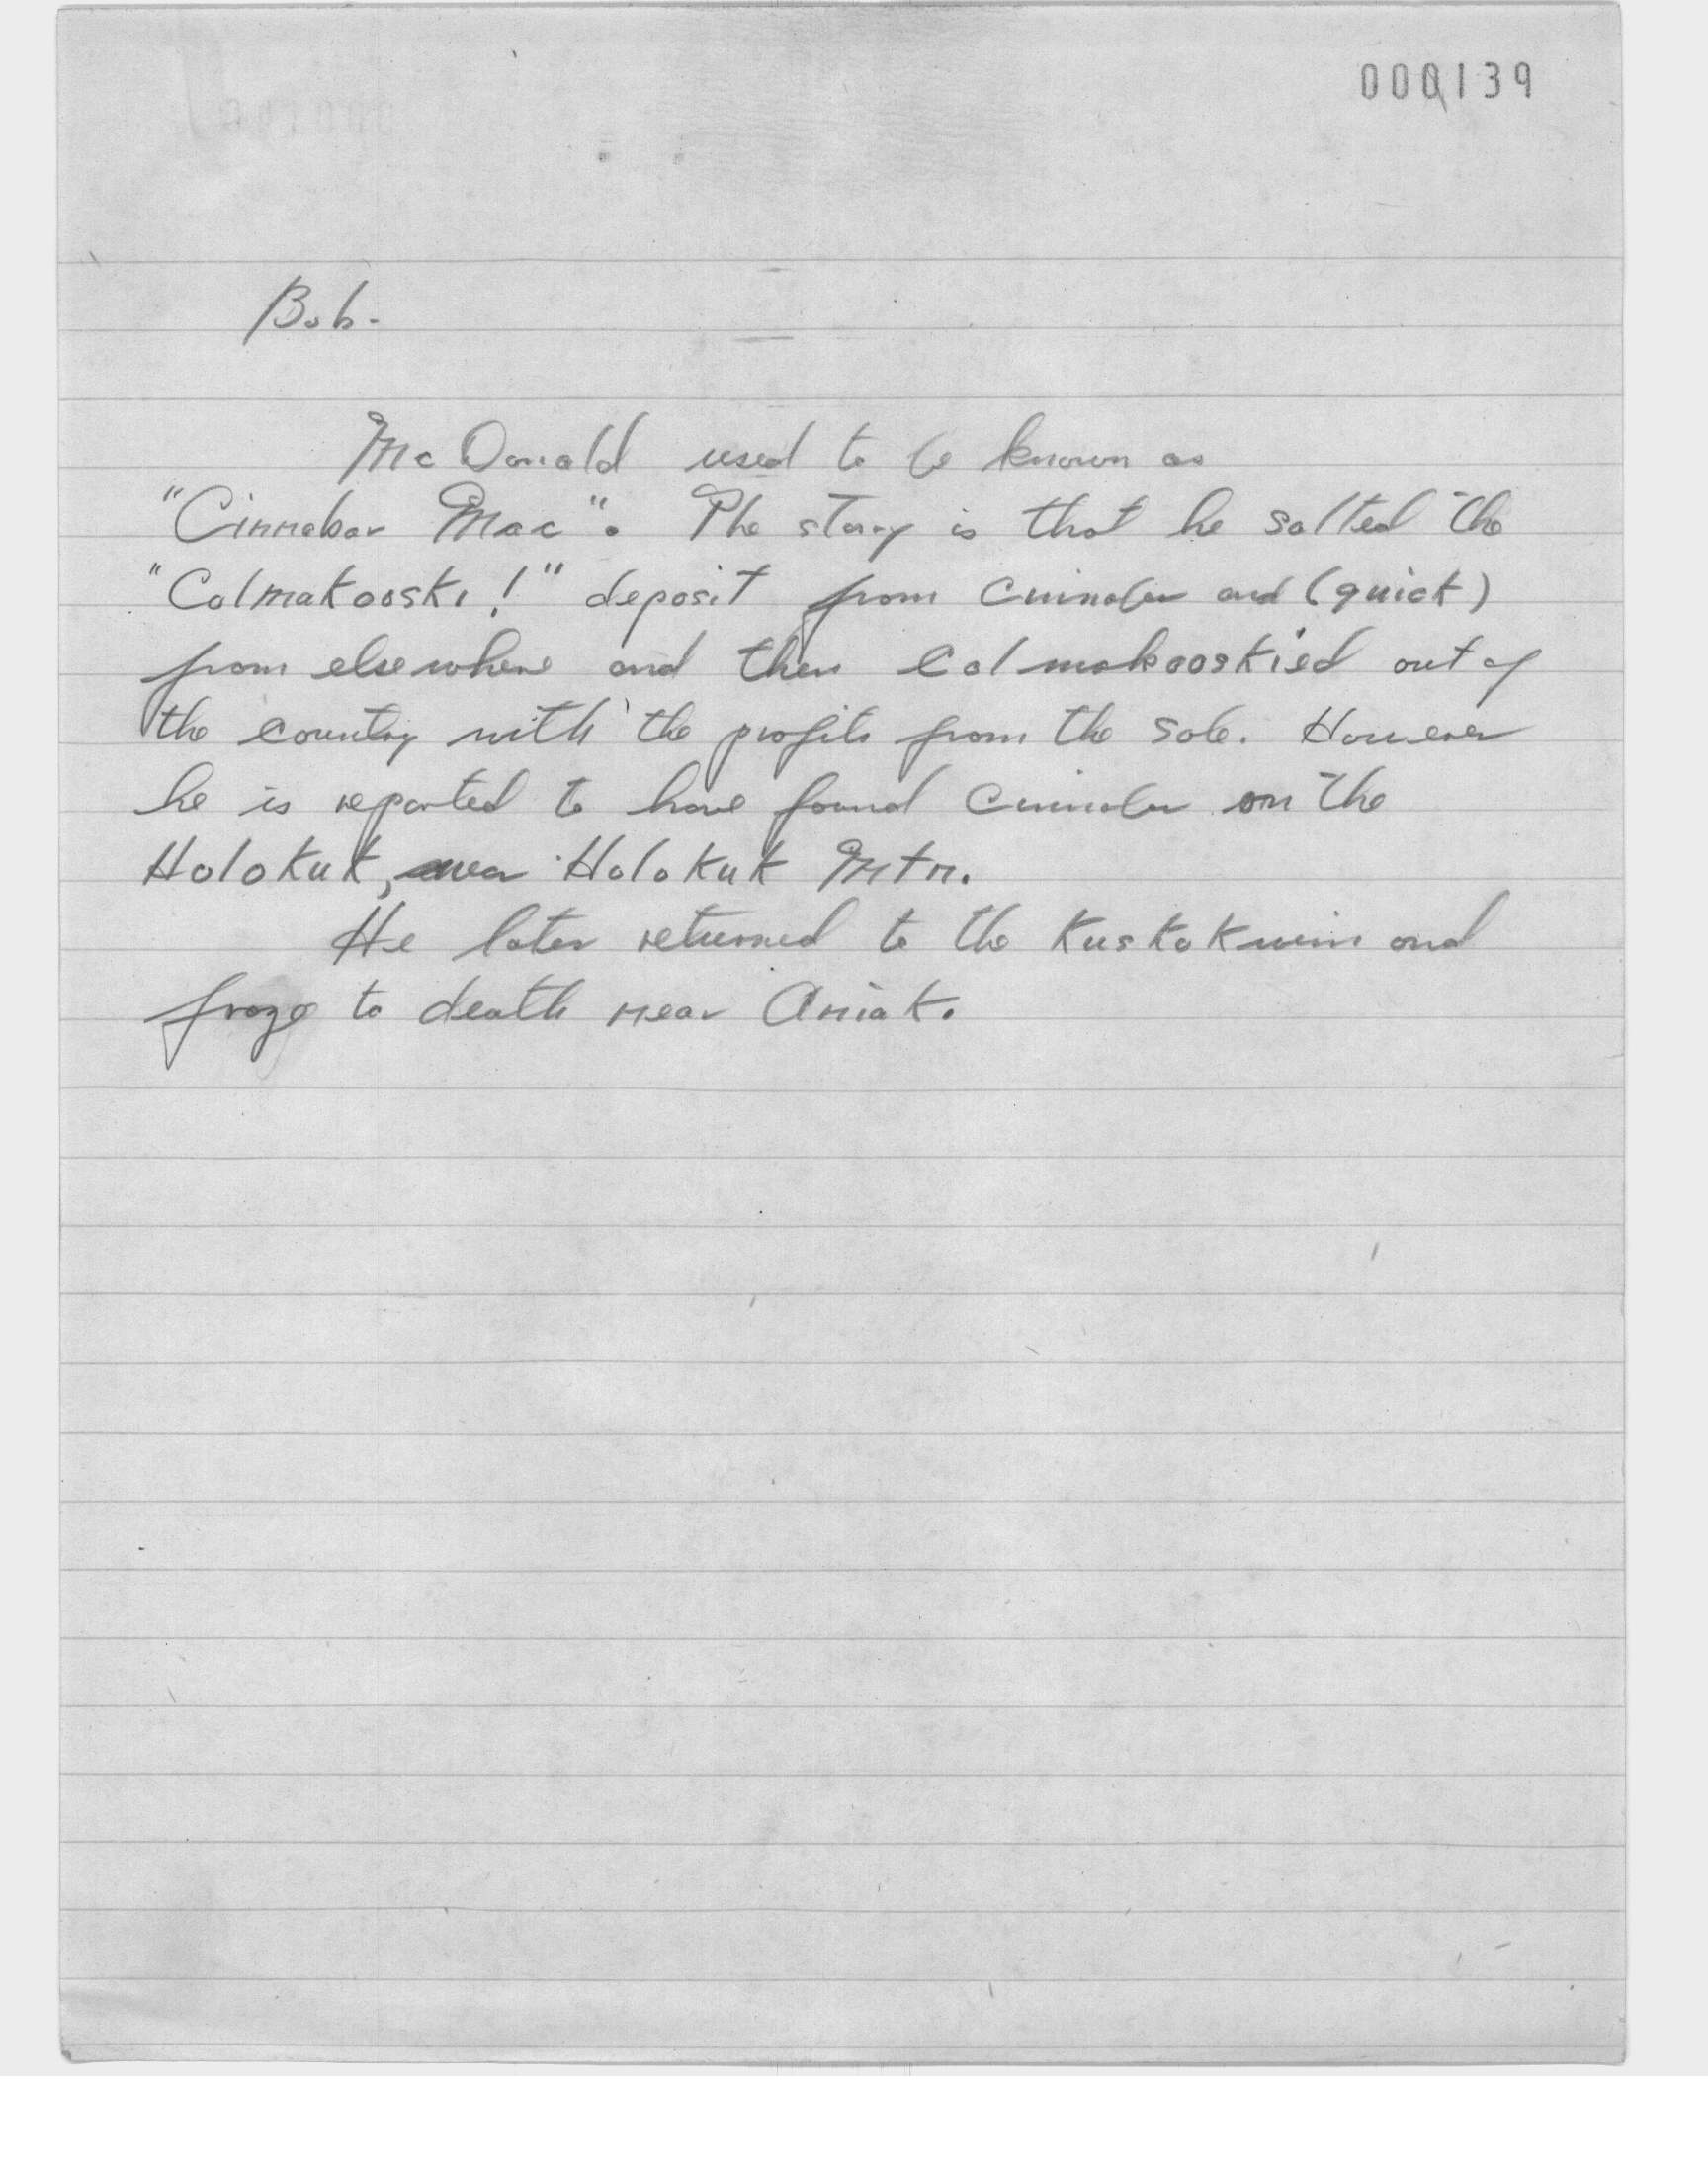 000139
Bob.
McDonald used to be known as
"Cinnabar Mac". The story is that he salted the
"Colmakooski!" deposit from cinnabar and (quick)
from elsewhere and then Colmakooskied out of
the country with the profits from the sale. However
he is reported to have found cinnabar on the
Holokuk, near Holokuk Mtn.
He later returned to the Kuskokwim and
froze to death near Aniak.